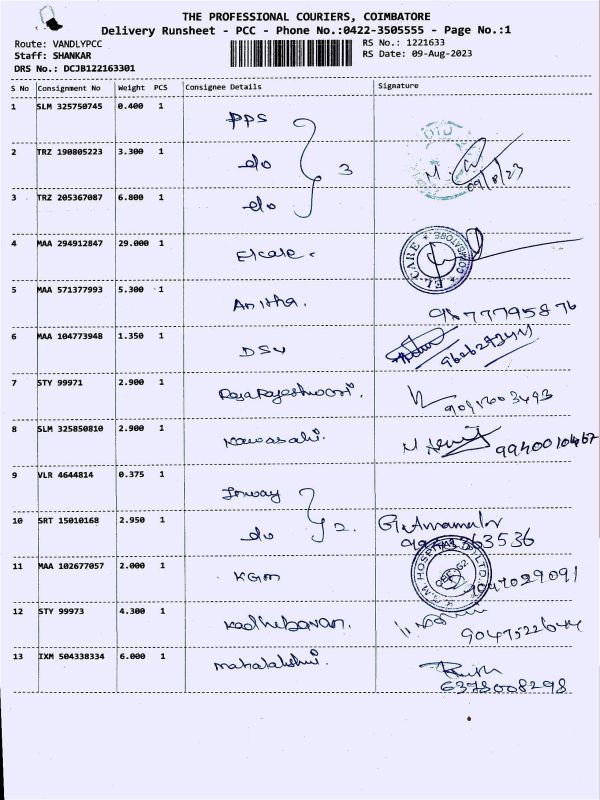 THE PROFESSIONAL COURIERS, COIMBATORE
Delivery Runsheet - PCC - Phone No.:0422-3505555 - Page No.:1
Route: VANDLYPCC RS No.: 1221633
Staff: SHANKAR RS Date: 09-Aug-2023
DRS No.: DCJB122163301
S No Consignment No Weight PCS Consignee Details Signature
1 SLM 325750745 0.400 1 PPS
2 TRZ 190805223 3.300 1 do 3 09/8/23
3 TRZ 205367087 6.800 1 do
4 MAA 294912847 29.000 1 Elcare
EL CARE
5 MAA 571377993 5.300 1 Anitha.
6 MAA 104773948 1.350 1 DSV
7 STY 99971 2.900 1 RajaRajeshwari.
8 SLM 325850810 2.900 1 Kawasaki. 9940010467
9 VLR 4644814 0.375 1
10 SRT 15010168 2.950 1 do 2.
11 MAA 102677057 2.000 1 KGM
12 STY 99973 4.300 1 Kadhibavan.
13 IXM 504338334 6.000 1 Mahalakshmi.
6378008298